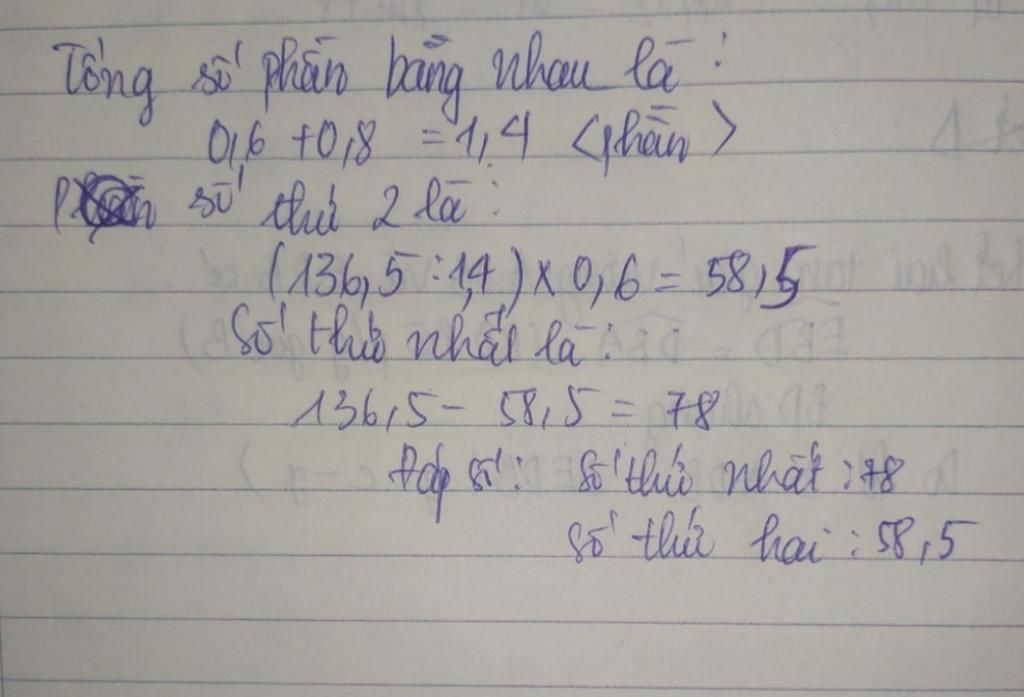 Tổng số phần bằng nhau là :
0,6 + 0,8 = 1,4 <phần>
số thứ 2 là :
(136,5 : 1,4) x 0,6 = 58,5
Số thứ nhất là :
136,5 - 58,5 = 78
Đáp số : số thứ nhất : 78
số thứ hai : 58,5